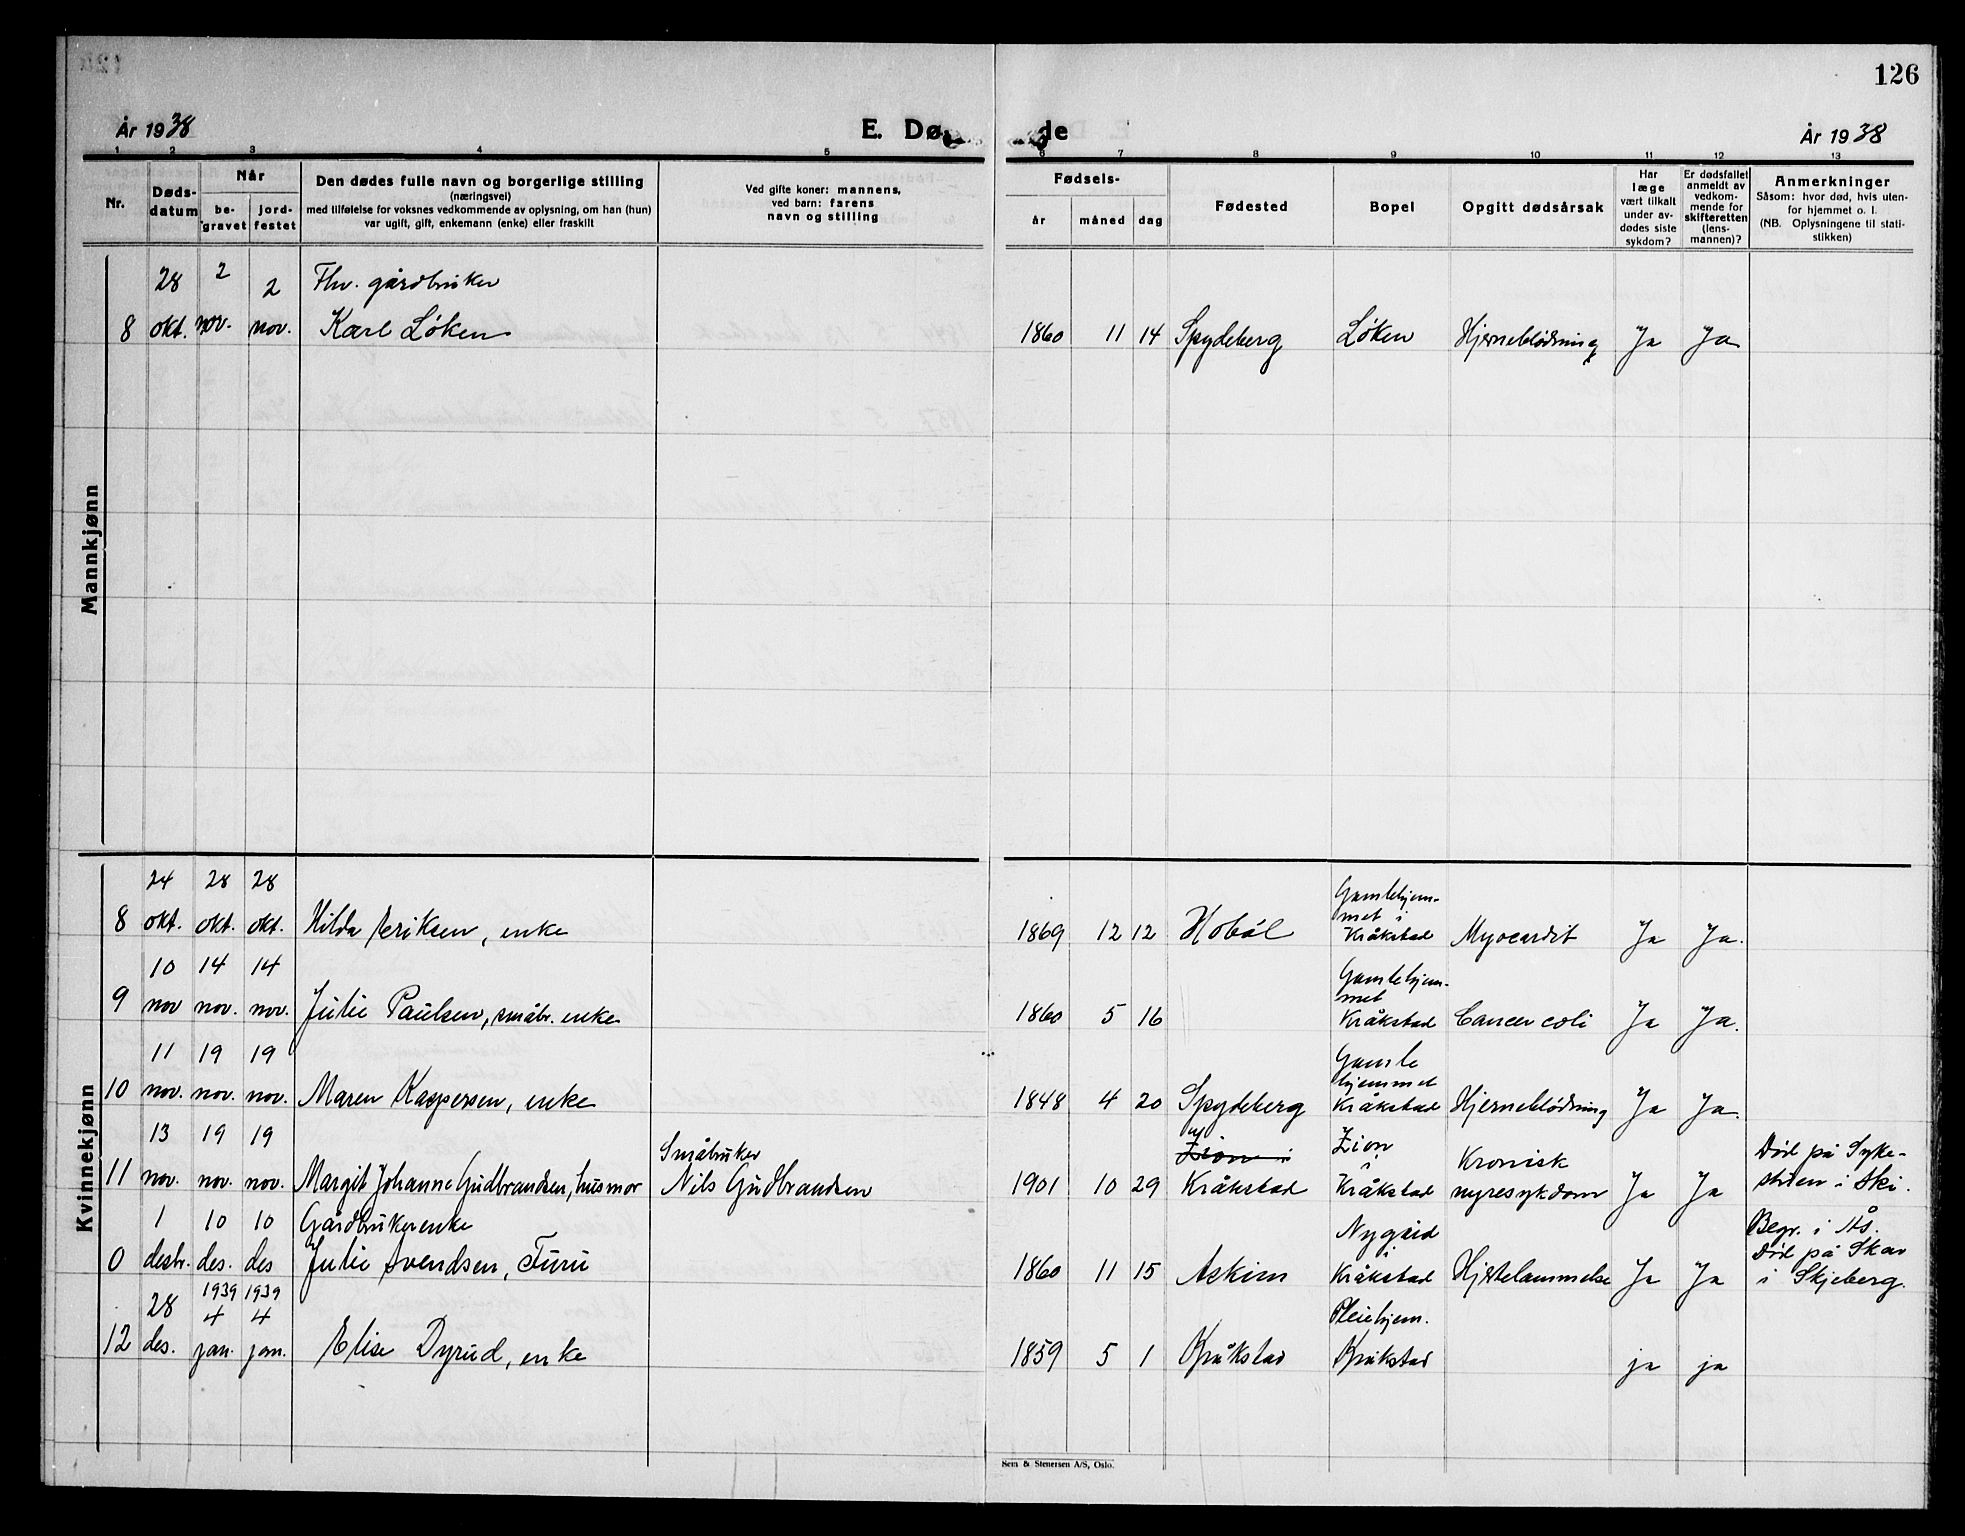 126
År 1938
E. Dø
de
År 1938
1 2 3 4 5 6 7 8 9 10 11 12 13
Nr.
Døds-
datum
Når
be-
gravet
jord-
festet
Den dødes fulle navn og borgerlige stilling
(næringsvei)
med tilføielse for voksnes vedkommende av oplysning, om han (hun)
var ugift, gift, enkemann (enke) eller fraskilt
Ved gifte koner: mannens,
ved barn: farens
navn og stilling
Fødsels-
år
måned
dag
Fødested
Bopel
Opgitt dødsårsak
Har
læge
vært tilkalt
under av-
dødes siste
sykdom?
Er dødsfallet
anmeldt av
vedkom-
mende for
skifteretten
(lens-
mannen)?
Anmerkninger
Såsom: hvor død, hvis uten-
for hjemmet o. l.
(NB. Oplysningene til stati-
stikken)
Mannkjønn
28 2 2 Fhv. gårdbruker
8 okt. nov. nov. Karl Løken 1860 11 14 Spydeberg Løken Hjerneblødning Ja Ja
Kvinnekjønn
24 28 28 Gamlehjem-
met i
8 okt. okt. okt. Hilda Eriksen, enke 1869 12 12 Hobøl Kråkstad Myocardit Ja Ja.
10 14 14 Gamlehjem-
met
9 nov nov. nov. Julie Paulsen, småbr. enke 1860 5 16 Kråkstad Cancer coli Ja Ja.
11 19 19 Gamle
hjemmet
10 nov. nov. nov. Maren Kaspersen, enke 1848 4 20 Spydeberg Kråkstad Hjerneblødning Ja Ja.
13 19 19 Småbruker Zion i Zion i Kronisk Død på Syke-
11 nov. nov. nov. Margit Johanne Gudbrandsen, husmor Nils Gudbrandsen 1901 10 29 Kråkstad Kråkstad nyresykdom Ja Ja stuen i Ski.
1 10 10 Gårdbrukerenke Nygård i Begr. i Ås.
Død på Skar
0 desbr. des. des Julie Svendsen, Furu 1860 11 15 Askim Kråkstad Hjertelammelse Ja Ja i Skjeberg.
1939 1939
28 4 4 Pleiehjem.
12 des. jan. jan. Elise Dyrud, enke 1859 5 1 Kråkstad Kråkstad ja ja
Sem & Stenersen A/S, Oslo.